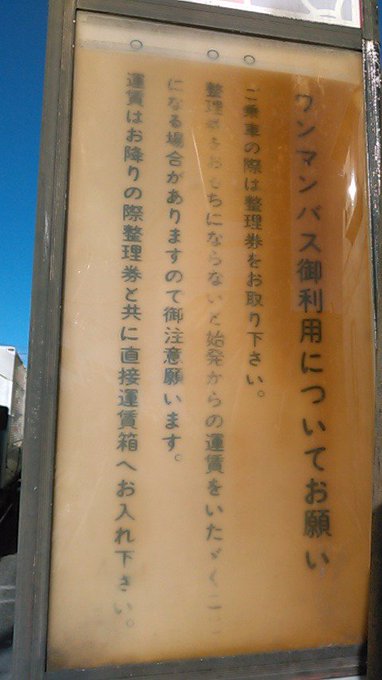 ワンマンバス御利用についてお願い
○ご乗車の際は整理券をお取り下さい。
○整理券をおもちにならないと始発からの運賃をいたゞくこ
になる場合がありますので御注意願います。
○運賃はお降りの際整理券と共に直接運賃箱へお入れ下さい。